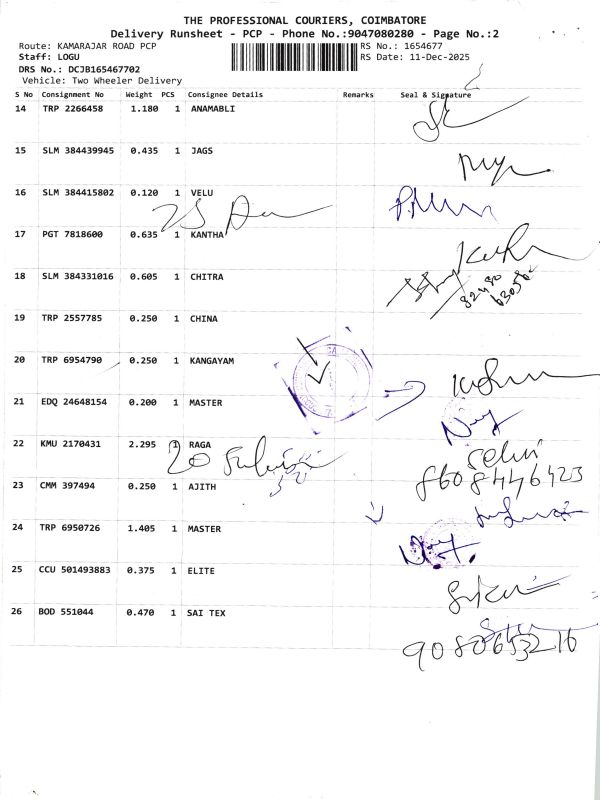 THE PROFESSIONAL COURIERS, COIMBATORE
Delivery Runsheet - PCP - Phone No.:9047080280 - Page No.:2
Route: KAMARAJAR ROAD PCP RS No.: 1654677
Staff: LOGU RS Date: 11-Dec-2025
DRS No.: DCJB165467702
Vehicle: Two Wheeler Delivery
S No Consignment No Weight PCS Consignee Details Remarks Seal & Signature
14 TRP 2266458 1.180 1 ANAMABLI
15 SLM 384439945 0.435 1 JAGS
16 SLM 384415802 0.120 1 VELU
17 PGT 7818600 0.635 1 KANTHA
18 SLM 384331016 0.605 1 CHITRA
82480
63056
19 TRP 2557785 0.250 1 CHINA
20 TRP 6954790 0.250 1 KANGAYAM
21 EDQ 24648154 0.200 1 MASTER
22 KMU 2170431 2.295 1 RAGA
20 Selvi
8608446423
23 CMM 397494 0.250 1 AJITH
24 TRP 6950726 1.405 1 MASTER
25 CCU 501493883 0.375 1 ELITE
26 BOD 551044 0.470 1 SAI TEX
9080653216